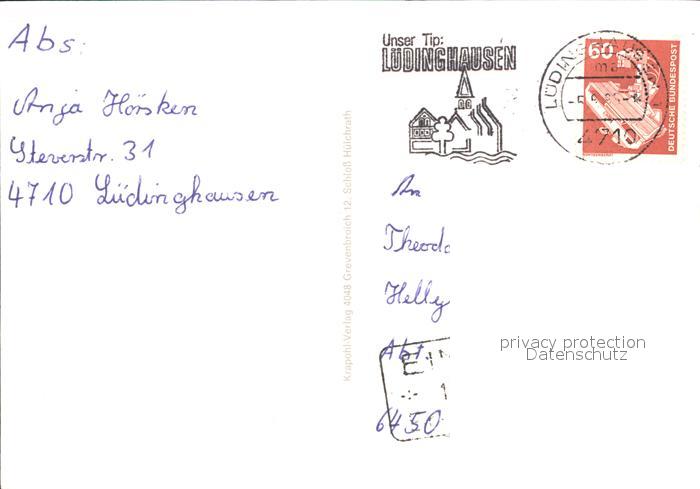 Abs:
Anja Hörsken
Steverstr. 31
4710 Lüdinghausen
Krapohl-Verlag 4048 Grevenbroich 12, Schloß Hülchrath
Unser Tip:
LÜDINGHAUSEN
LÜDINGHAUSEN
4710
60
DEUTSCHE BUNDESPOST
An
Theodo
Helly
Abt.
EIN
6450
privacy protection
Datenschutz